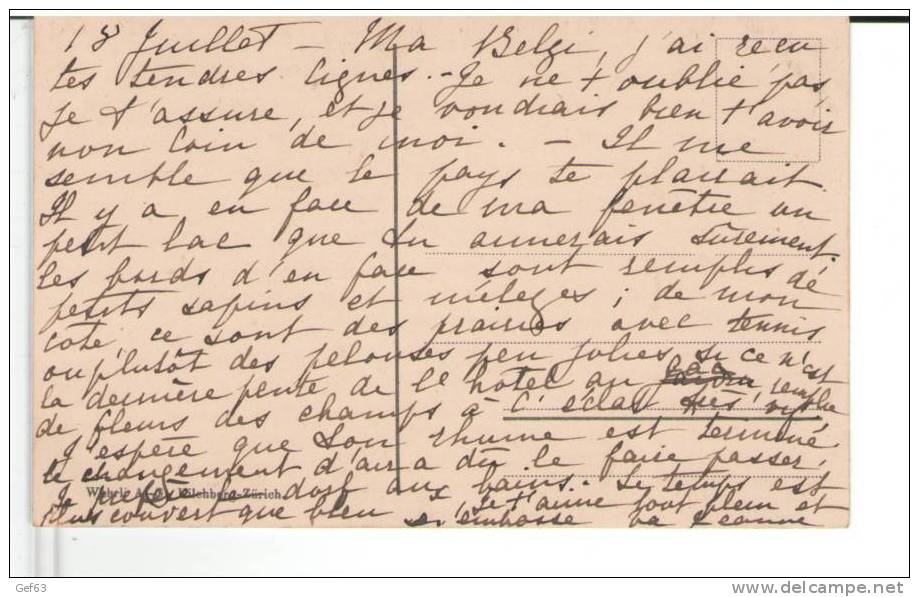 18 Juillet - Ma Belgi, j'ai recu
tes tendres lignes. - Je ne t'oublie pas,
je t'assure, et je voudrais bien t'avoir
non loin de moi. - Il me
semble que le pays te plairait.
Il y a en face de ma fenêtre un
petit lac que tu aimerais sûrement.
Les bords d'en face sont remplis de
petits sapins et mélèzes ; de mon
côté ce sont des prairies avec tennis
ou plutôt des pelouses peu jolies si ce n'est
la dernière pente de l'hôtel au lac remplie
de fleurs des champs à l'éclat très vif
J'espère que ton rhume est terminé
le changement d'air a dû le faire passer.
Je dort aux bains. Le temps est
plus couvert que bleu Je t'aime tout plein et
t'embrasse ta Jeanne
Wehrli A.-G., Kilchberg-Zürich.
Gef63
delcampe.net